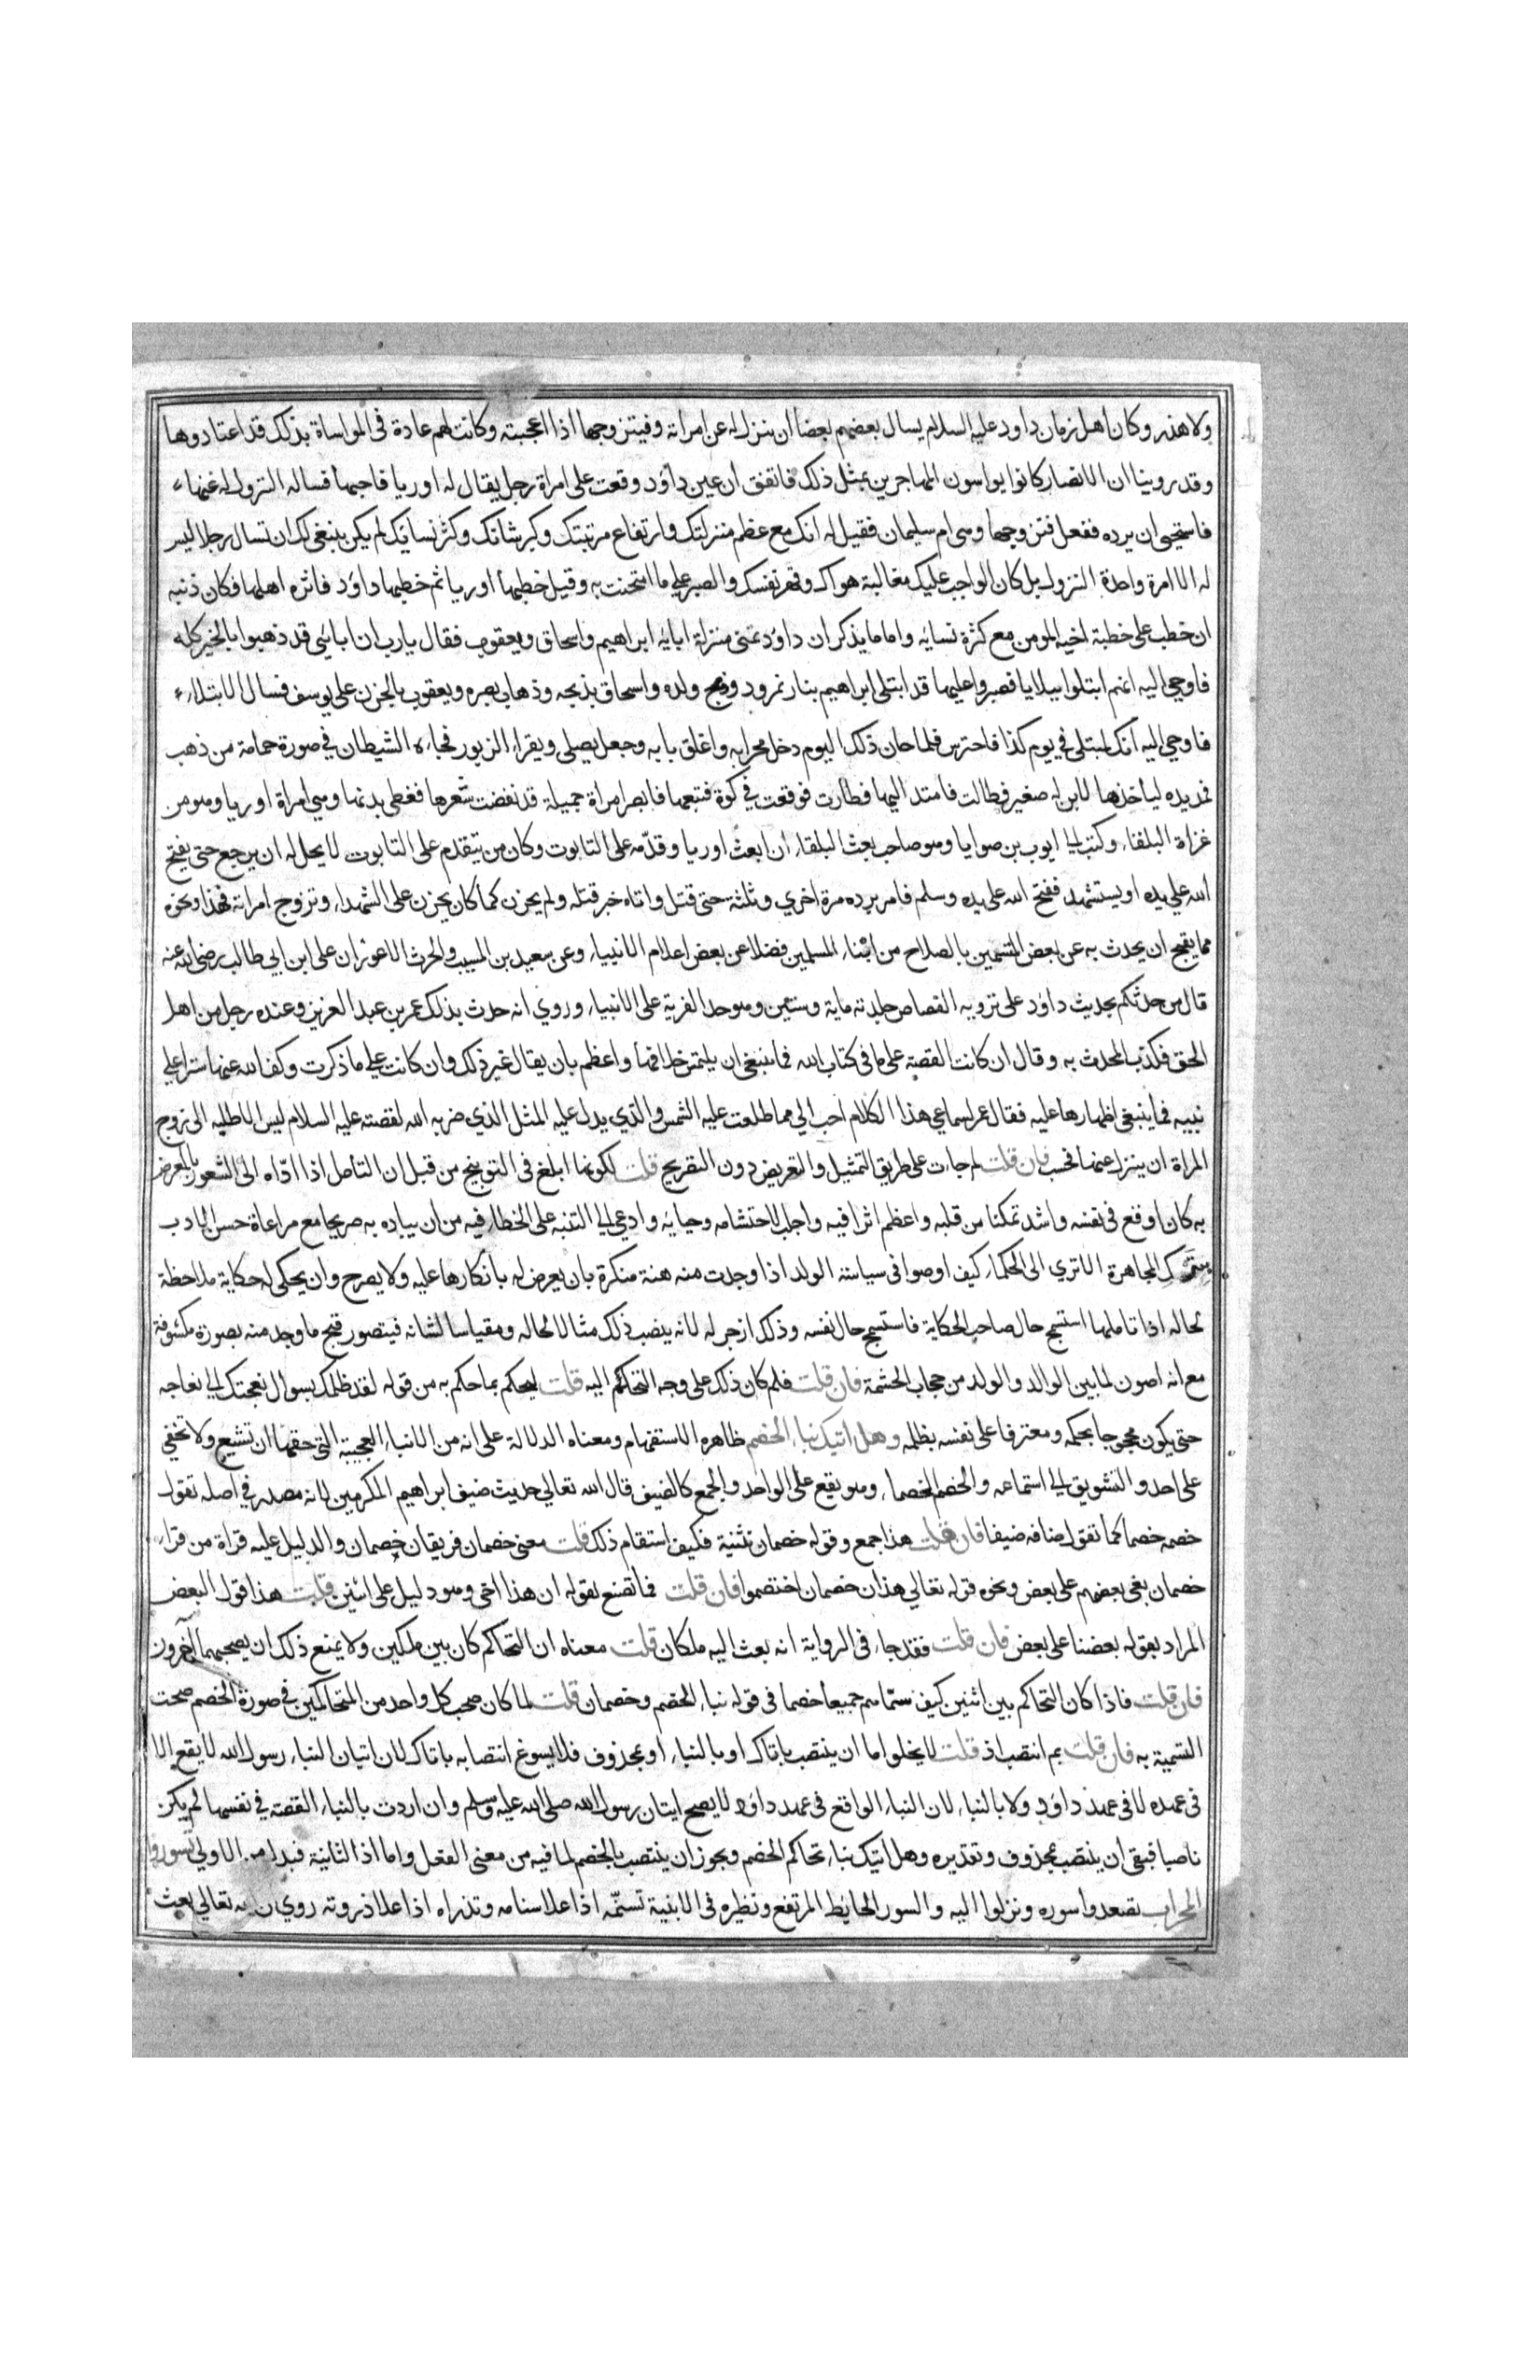 ولا هذر وكان اهل زمان داود عليه السلام يسال بعضهم بعضا ان ينزل له عن امراته وفيتزوجها اذا اعجبته وكانت لهم عادة في المواساة بذلك قد اعتادوها
وقد روينا ان الانصار كانوا يواسون المهاجرين بمثل ذلك فاتفق ان عين داؤد وقعت على امراة رجل يقال له اوريا فاحبها فساله النزول له عنها
فاستحيى ان يرده ففعل فتزوجها وهي ام سليمان فقيل له انك مع عظم منزلتك وارتفاع مرتبتك وكبر شانك وكثر نسائك لم يكن ينبغي لك ان تسال رجلا ليس
له الا امرة واحدة النزول بل كان الواجب عليك مغالبة هواك وقهر نفسك والصبر على ما امتحنت به وقيل خطبها اوريا ثم خطبها داؤد فاثره اهلها فكان ذنبه
ان خطب على خطبة اخيه المومن مع كثرة نسائه واما ما يذكر ان داؤد تمنى منزلة ابايه ابراهيم واسحاق ويعقوب فقال يارب ان ابائي قد ذهبوا بالخير كله
فاوحي اليه انهم ابتلوا ببلايا فصبروا عليها قد ابتلى ابراهيم بنار نمرود وذبح ولده واسحاق بذبحه وذهاب بصره ويعقوب بالحزن على يوسف فسال الابتلاء
فاوحي اليه انك لمبتلى في يوم كذا فاحترس فلما حان ذلك اليوم دخل محرابه واغلق بابه وجعل يصلي ويقراء الزبور فجاءه الشيطان في صورة حمامة من ذهب
فمد يده ليأخذها لابن له صغير فطالت فامتد اليها فطارت فوقعت في كوة فتبعها فابصر امراة جميلة قد نفضت شعرها فغطى بدنها وهي امراة اوريا وهو من
غزاة البلقاء وكتب الى ايوب بن صوايا وهو صاحب بعث البلقاء ان ابعث اوريا وقدّمه على التابوت وكان من يتقدم على التابوت لا يحل له ان يرجع حتى يفتح
الله على يده او يستشهد ففتح الله على يده وسلم فامر برده مرة اخري وثلثة حتى قتل واتاه خبر قتله ولم يحزن كما كان يحزن على الشهداء وتزوج امراته فهذا ونحوه
مما يقبح ان يحدث به عن بعض المتسمين بالصلاح من ابناء المسلمين فضلا عن بعض اعلام الانبياء وعن سعيد بن المسيب والحرث الاعور ان على ابن ابي طالب رضى الله عنه
قال من حدثكم بحديث داود على ترويه القصاص جلدته ماية وستين وهو حد الفرية على الانبياء وروي انه حدث بذلك عمر بن عبد العزيز وعنده رجل من اهل
الحق فكذب المحدث به وقال ان كانت القصة على ما في كتاب الله فما ينبغي ان يلتمس خلافها واعظم بان يقال غير ذلك وان كانت على ما ذكرت وكف الله عنها سترا على
نبيه فما ينبغي اظهارها عليه فقال عمر لسماعي هذا الكلام احب الي مما طلعت عليه الشمس والذي يدل عليه المثل الذي ضربه الله لقصته عليه السلام ليس الا طلبه الى زوج
المراة ان ينزل عنها فحسب فان قلت لم جات على طريق التمثيل والتعريض دون التقريح قلت لكونها ابلغ في التوبيخ من قبل ان التامل اذا ادّاه الى الشعور بالمعرض
به كان اوقع في نفسه واشد تمكنا من قلبه واعظم اثرا فيه واجلب لاحتشامه وحيائه وادعي الى التنبه على الخطاء فيه من ان يباده به صريحا مع مراعاة حسن الادب
بترك المجاهرة الا تري الى الحكماء كيف اوصوا في سياسة الولد اذا وجدت منه هنة منكرة بان يعرض له بانكارها عليه ولا يصرح وان يحكى له حكاية ملاحظة
لحاله اذا تاملها استسمج حال صاحب الحكاية فاستسمج حال نفسه وذلك ازجر له لانه ينصب ذلك مثالا لحاله ومقياسا لشانه فيتصور قبح ما وجد منه بصورة مكشوفة
مع انه اصون لما بين الوالد والولد من حجاب الحشمة فان قلت فلم كان ذلك على وجه التحاكم اليه قلت ليحكم بما حكم به من قوله لقد ظلمك بسوال نعجتك الى نعاجه
حتى يكون محجوجا بحكمه ومعترفا على نفسه بظلمه وهل اتيك نباء الخصم ظاهره الاستفهام ومعناه الدلالة على انه من الانباء العجيبة التي حقها ان تشيع ولا تخفي
على احد والتشويق الى استماعه والخصم الخصماء وهو يقع على الواحد والجمع كالضيف قال الله تعالي حديث ضيف ابراهيم المكرمين لانه مصدر في اصله تقول
خصمه خصما كما تقول ضافه ضيفا فان قلت هذا جمع وقوله خصمان تثنية فكيف استقام ذلك قلت معنى خصمان فريقان خصمان والدليل عليه قراة من قراء
خصمان بغى بعضهم على بعض ونحوه قوله تعالي هذان خصمان اختصموا فان قلت فما تصنع بقوله ان هذا اخي وهو دليل على اثنين قلت هذا قول البعض
المراد بقوله بعضنا على بعض فان قلت فقد جاء في الرواية انه بعث اليه ملكان قلت معناه ان التحاكم كان بين ملكين ولا يمنع ذلك ان يصحبهما آخرون
فان قلت فاذا كان التحاكم بين اثنين كيف سمّاهم جميعا خصما في قوله نباء الخصم وخصمان قلت لما كان صحب كل واحد من المتحاكمين في صورة الخصم صحت
التسمية به فان قلت بم انتصب اذ قلت لا يخلو اما ان ينتصب باتاك او بالنباء او بمحذوف فلا يسوغ انتصابه باتاك لان اتيان النباء رسول الله لا يقع الا
في عهده لا في عهد داؤد ولا بالنباء لان النباء الواقع في عهد داؤد لا يصح ايتان رسول الله صلى الله عليه وسلم وان اردت بالنباء القصة في نفسها لم يكن
ناصبا فبقى ان ينتصب بمحذوف وتقديره وهل اتيك نباء تحاكم الخصم ويجوز ان ينتصب بالخصم لما فيه من معنى الفعل واما اذ الثانية فبدل من الاولي تسوروا
المحراب تصعدوا سوره ونزلوا اليه والسور الحايط المرتفع ونظيره في الابنية تسنمّه اذا علا سنامه وتذراه اذا علا ذروته روي ان الله تعالي بعث